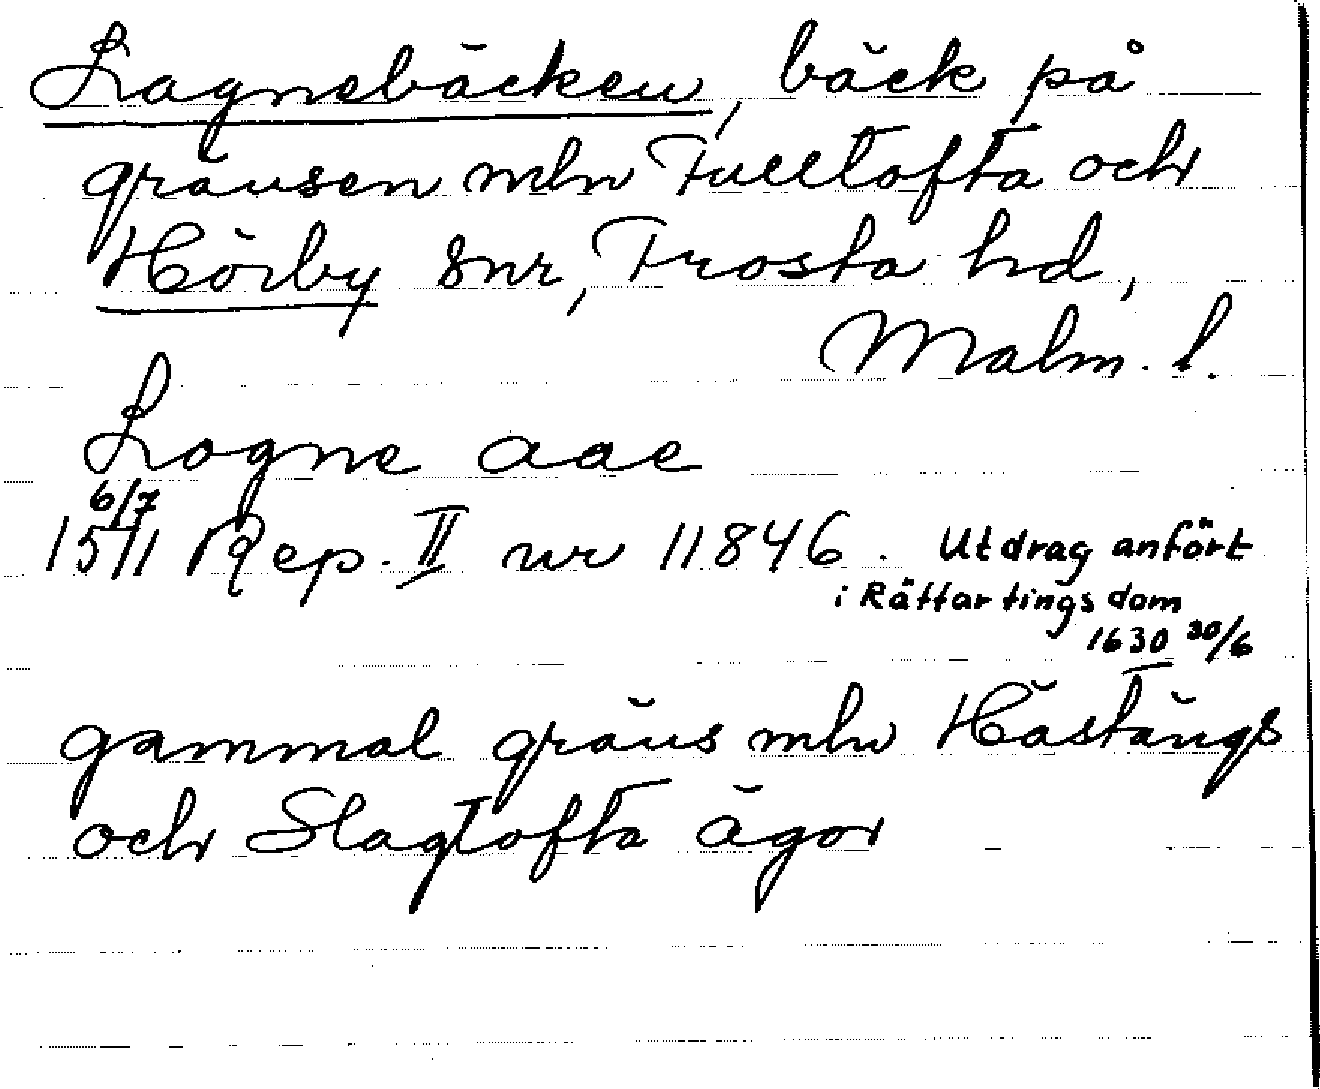 Lagnebäcken, bäck på
gränsen mln Fulltofta och
Hörby snr, Frosta hd,
Malm. l.
Logne aae
6/7
1511 Rep. II nr 11846. Utdrag anfört
i Rättartingsdom
1630 30/6
gammal gräns mln Häställngs
och Slagtofta ägor